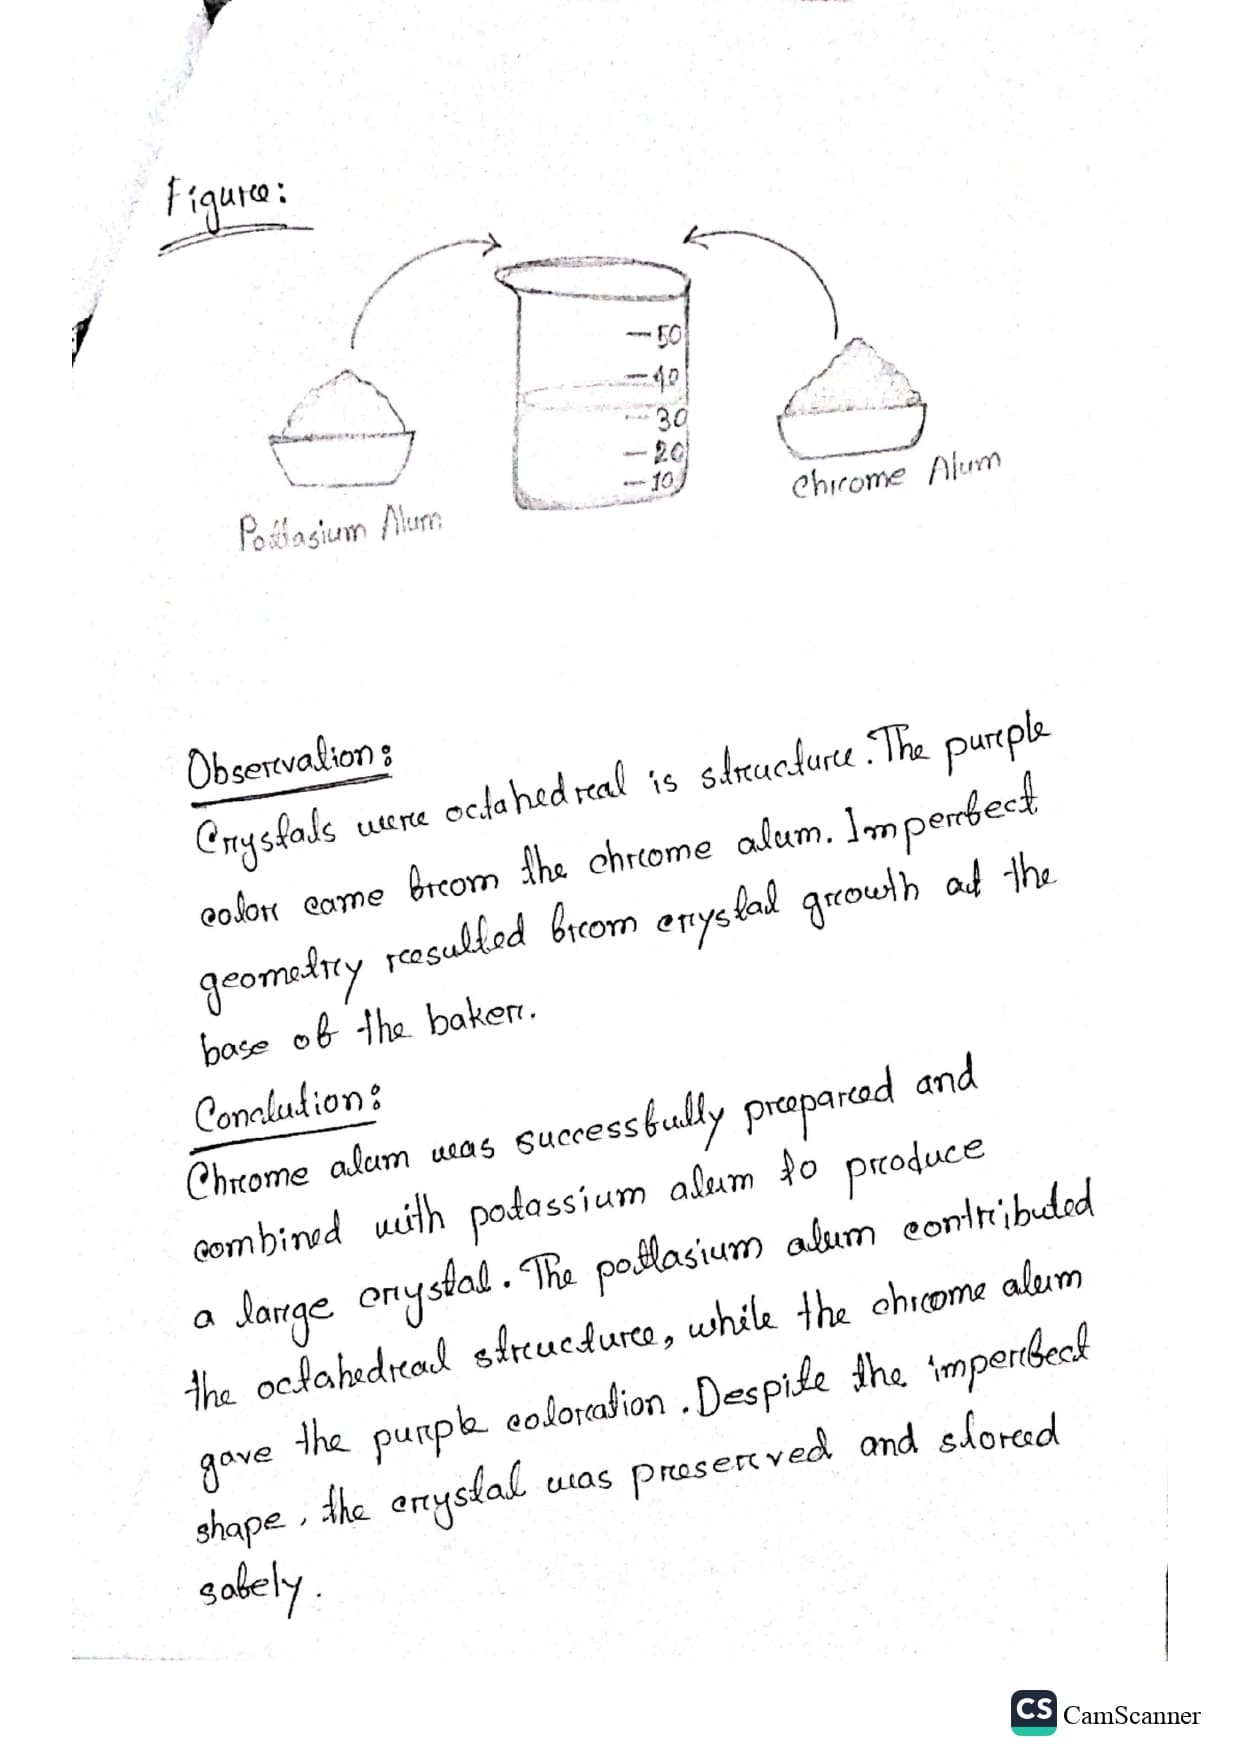 Figure:
50
40
30
20
10
Pottasium Alum
Chrome Alum
Observation:
Crystals were octahedral is structure. The purple
color came from the chrome alum. Imperfect
geometry resulted from crystal growth at the
base of the baker.
Conclution:
Chrome alum was successfully prepared and
combined with potassium alum to produce
a large crystal. The pottasium alum contributed
the octahedral structure, while the chrome alum
gave the purple coloration. Despite the imperfect
shape, the crystal was preserved and stored
safely.
CS CamScanner